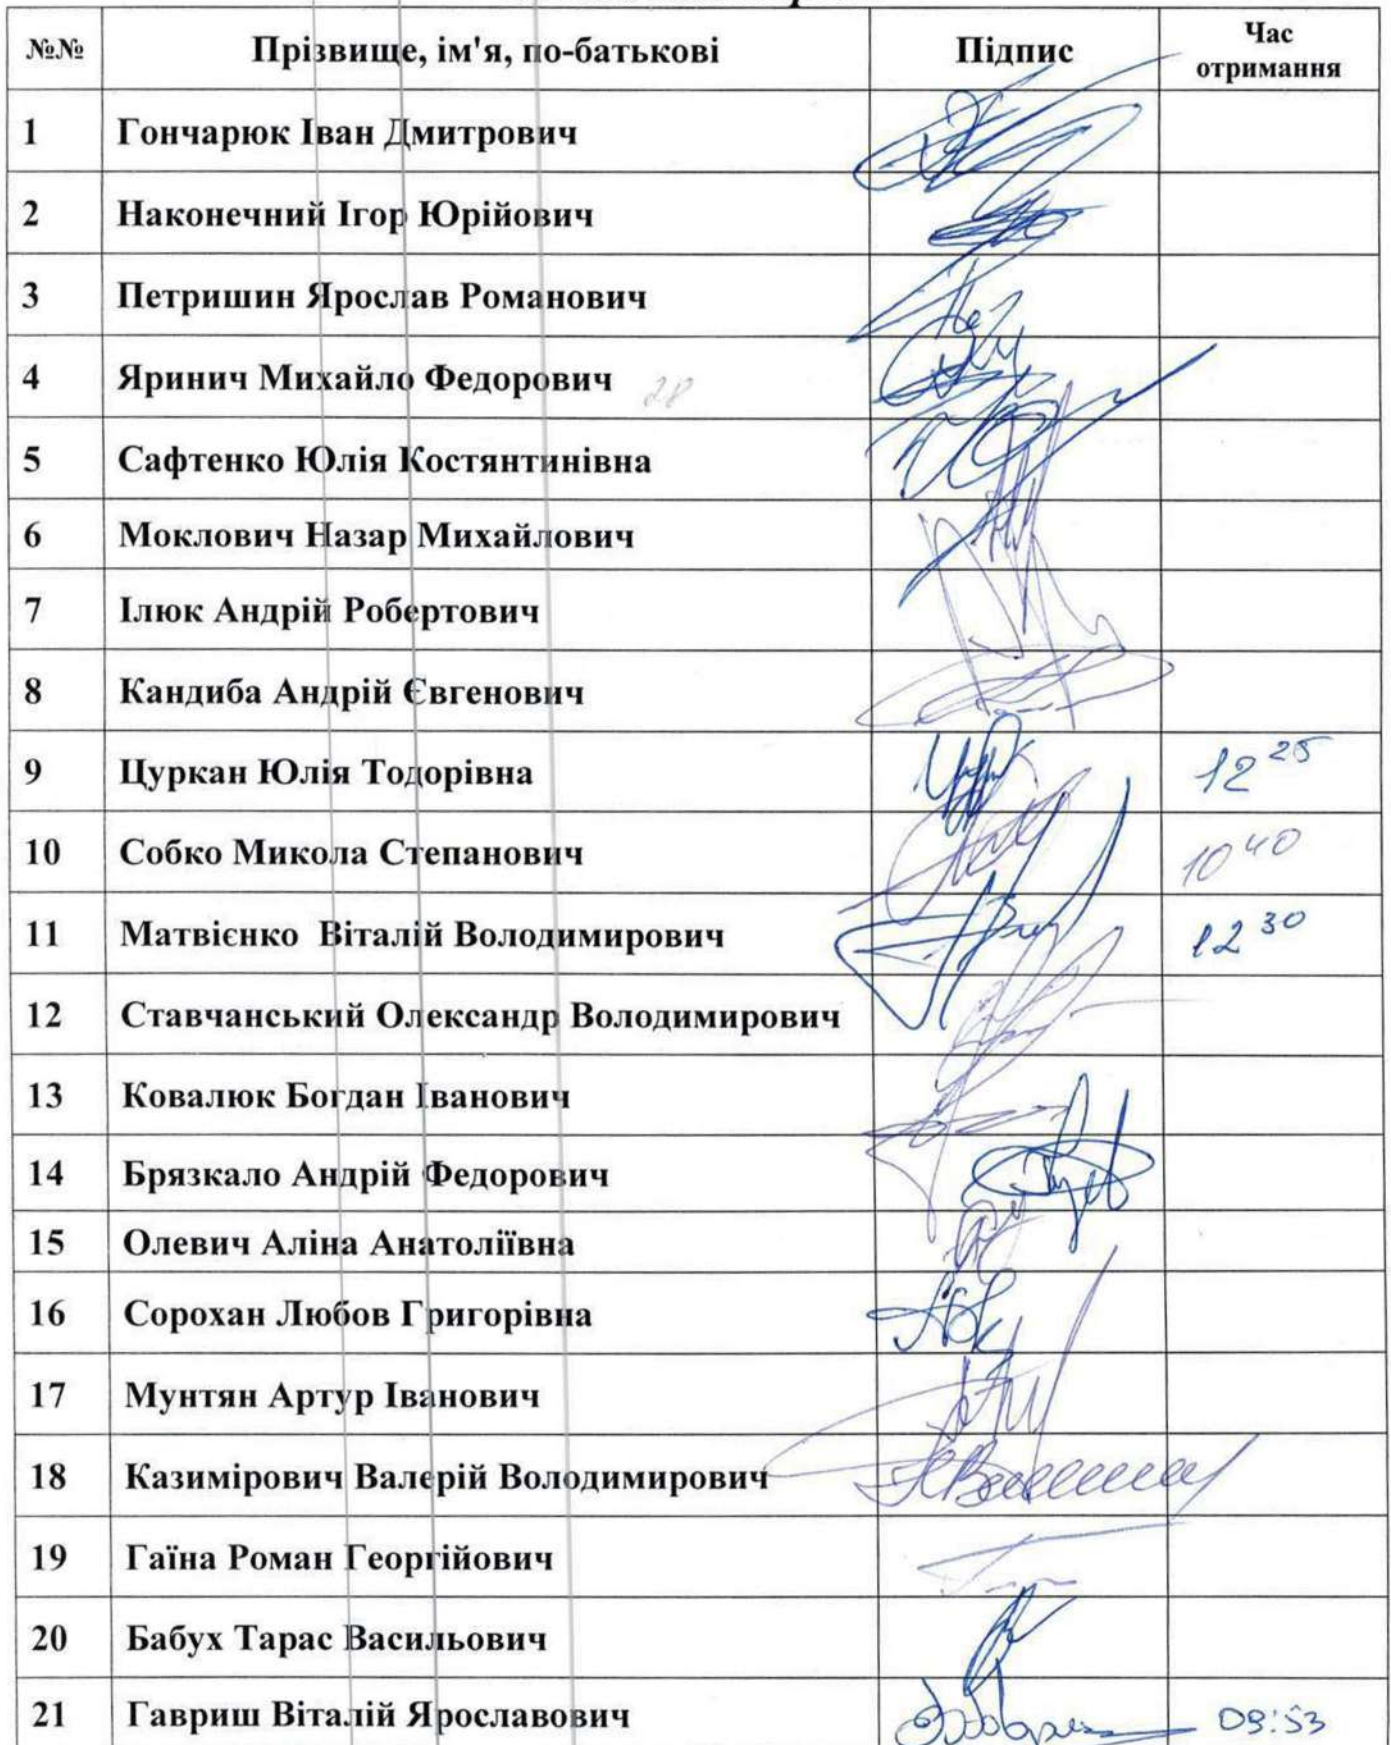 №№ Прізвище, ім'я, по-батькові Підпис Час отримання
1 Гончарюк Іван Дмитрович
2 Наконечний Ігор Юрійович
3 Петришин Ярослав Романович
4 Яринич Михайло Федорович 28
5 Сафтенко Юлія Костянтинівна
6 Моклович Назар Михайлович
7 Ілюк Андрій Робертович
8 Кандиба Андрій Євгенович
9 Цуркан Юлія Тодорівна 12 25
10 Собко Микола Степанович 10 40
11 Матвієнко Віталій Володимирович 12 30
12 Ставчанський Олександр Володимирович
13 Ковалюк Богдан Іванович
14 Брязкало Андрій Федорович
15 Олевич Аліна Анатоліївна
16 Сорохан Любов Григорівна
17 Мунтян Артур Іванович
18 Казимірович Валерій Володимирович
19 Гаїна Роман Георгійович
20 Бабух Тарас Васильович
21 Гавриш Віталій Ярославович 09:53